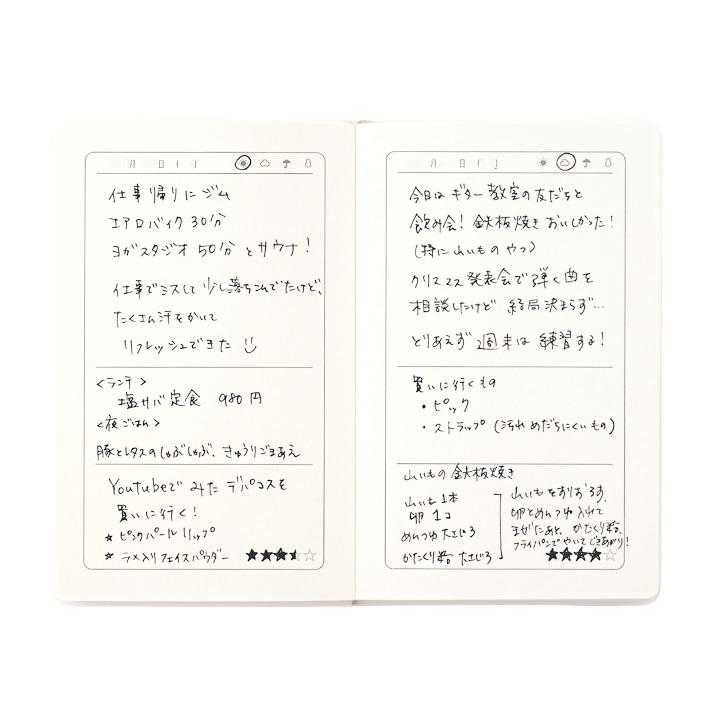 月 日 ( )
仕事帰りにジム
エアロバイク 30分
ヨガスタジオ 50分 とサウナ!
仕事でミスして少し落ちこんでたけど、
たくさん汗をかいて
リフレッシュできた
<ランチ>
塩サバ定食 980円
<夜ごはん>
豚とレタスのしゃぶしゃぶ、きゅうりごまあえ
Youtubeで みた デパコスを
買いに行く!
☆ ピンクパール リップ
☆ ラメ入りフェイスパウダー ★★★★☆
月 日 ( )
今日は ギター 教室の友だちと
飲み会! 鉄板焼き おいしかった!
(特に山いものやつ)
クリスマス発表会で弾く曲を
相談したけど 結局決まらず…
とりあえず 週末は 練習する!
買いに行くもの
・ピック
・ストラップ (汚れめだちにくいもの)
山いもの 鉄板焼き
山いも 1本
卵 1コ
めんつゆ 大さじ3
かたくり粉 大さじ3
山いもをすりおろす。
卵とめんつゆ入れて
まぜたあと、かたくり粉。
フライパンでやいてできあがり!
★★★★☆